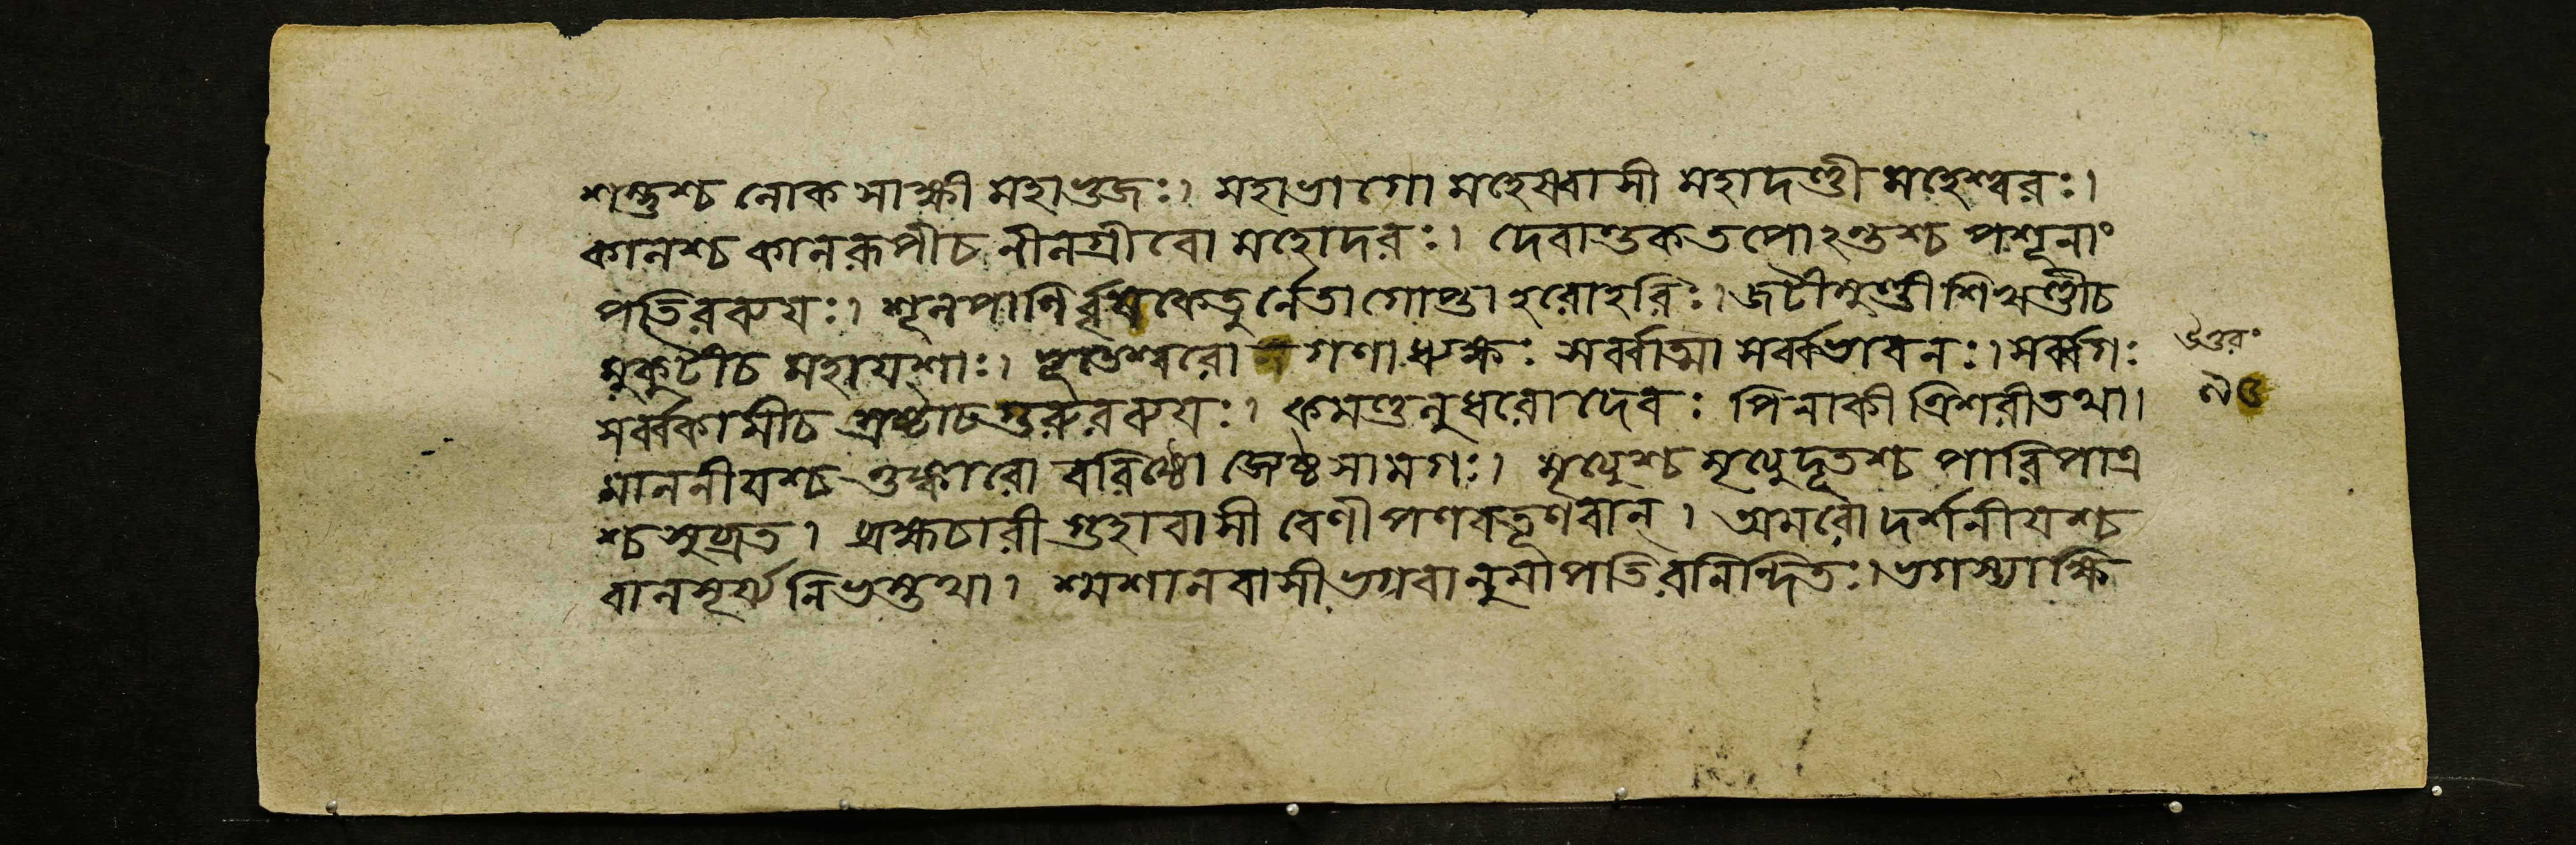 শম্ভুশ্চ লোকসাক্ষী মহাভুজঃ। মহাভাগো মহেষ্বাসী মহাদণ্ডী মহেশ্বরঃ।
কালশ্চ কালরূপীচ নীলগ্রীবো মহোদরঃ। দেবান্তকতপোঽন্তশ্চ পশূনাং
পতিরব্যয়ঃ। শূলপাণির্ব্বৃষকেতুর্নেতা গোপ্তা হরোহরিঃ। জটীমুণ্ডী শিখণ্ডীচ
মুকুটীচ মহাযশাঃ। গণাধ্যক্ষঃ সর্ব্বাত্মা সর্ব্বভাবনঃ। সর্ব্বগঃ
সর্ব্বকামীচ স্রষ্টাচ গুরুরব্যয়ঃ। কমণ্ডলুধরো দেবঃ পিনাকী ত্রিশরী তথা।
মাননীয়শ্চ ওঙ্কারো বরিষ্ঠো জ্যেষ্ঠসামগঃ। মৃত্যুশ্চ মৃত্যুদূতশ্চ পারিপাত্র
শ্চ সুব্রত। ব্রহ্মচারী গুহাবাসী বেণীপণবতূর্ণবান্। অমরো দর্শনীয়শ্চ
বালসূর্য্যনিভস্তথা। শ্মশানবাসী ভগবানুমাপতিরনিন্দিতঃ। ভগস্যাক্ষি
উত্তরং